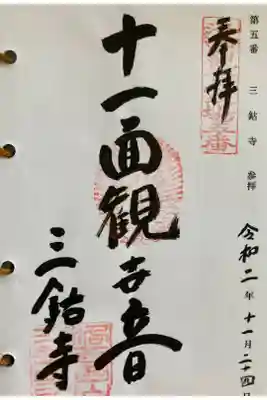 第五番 三鈷寺 参拝
奉拝
十一面観世音
三鈷寺
令和二年十一月二十四日